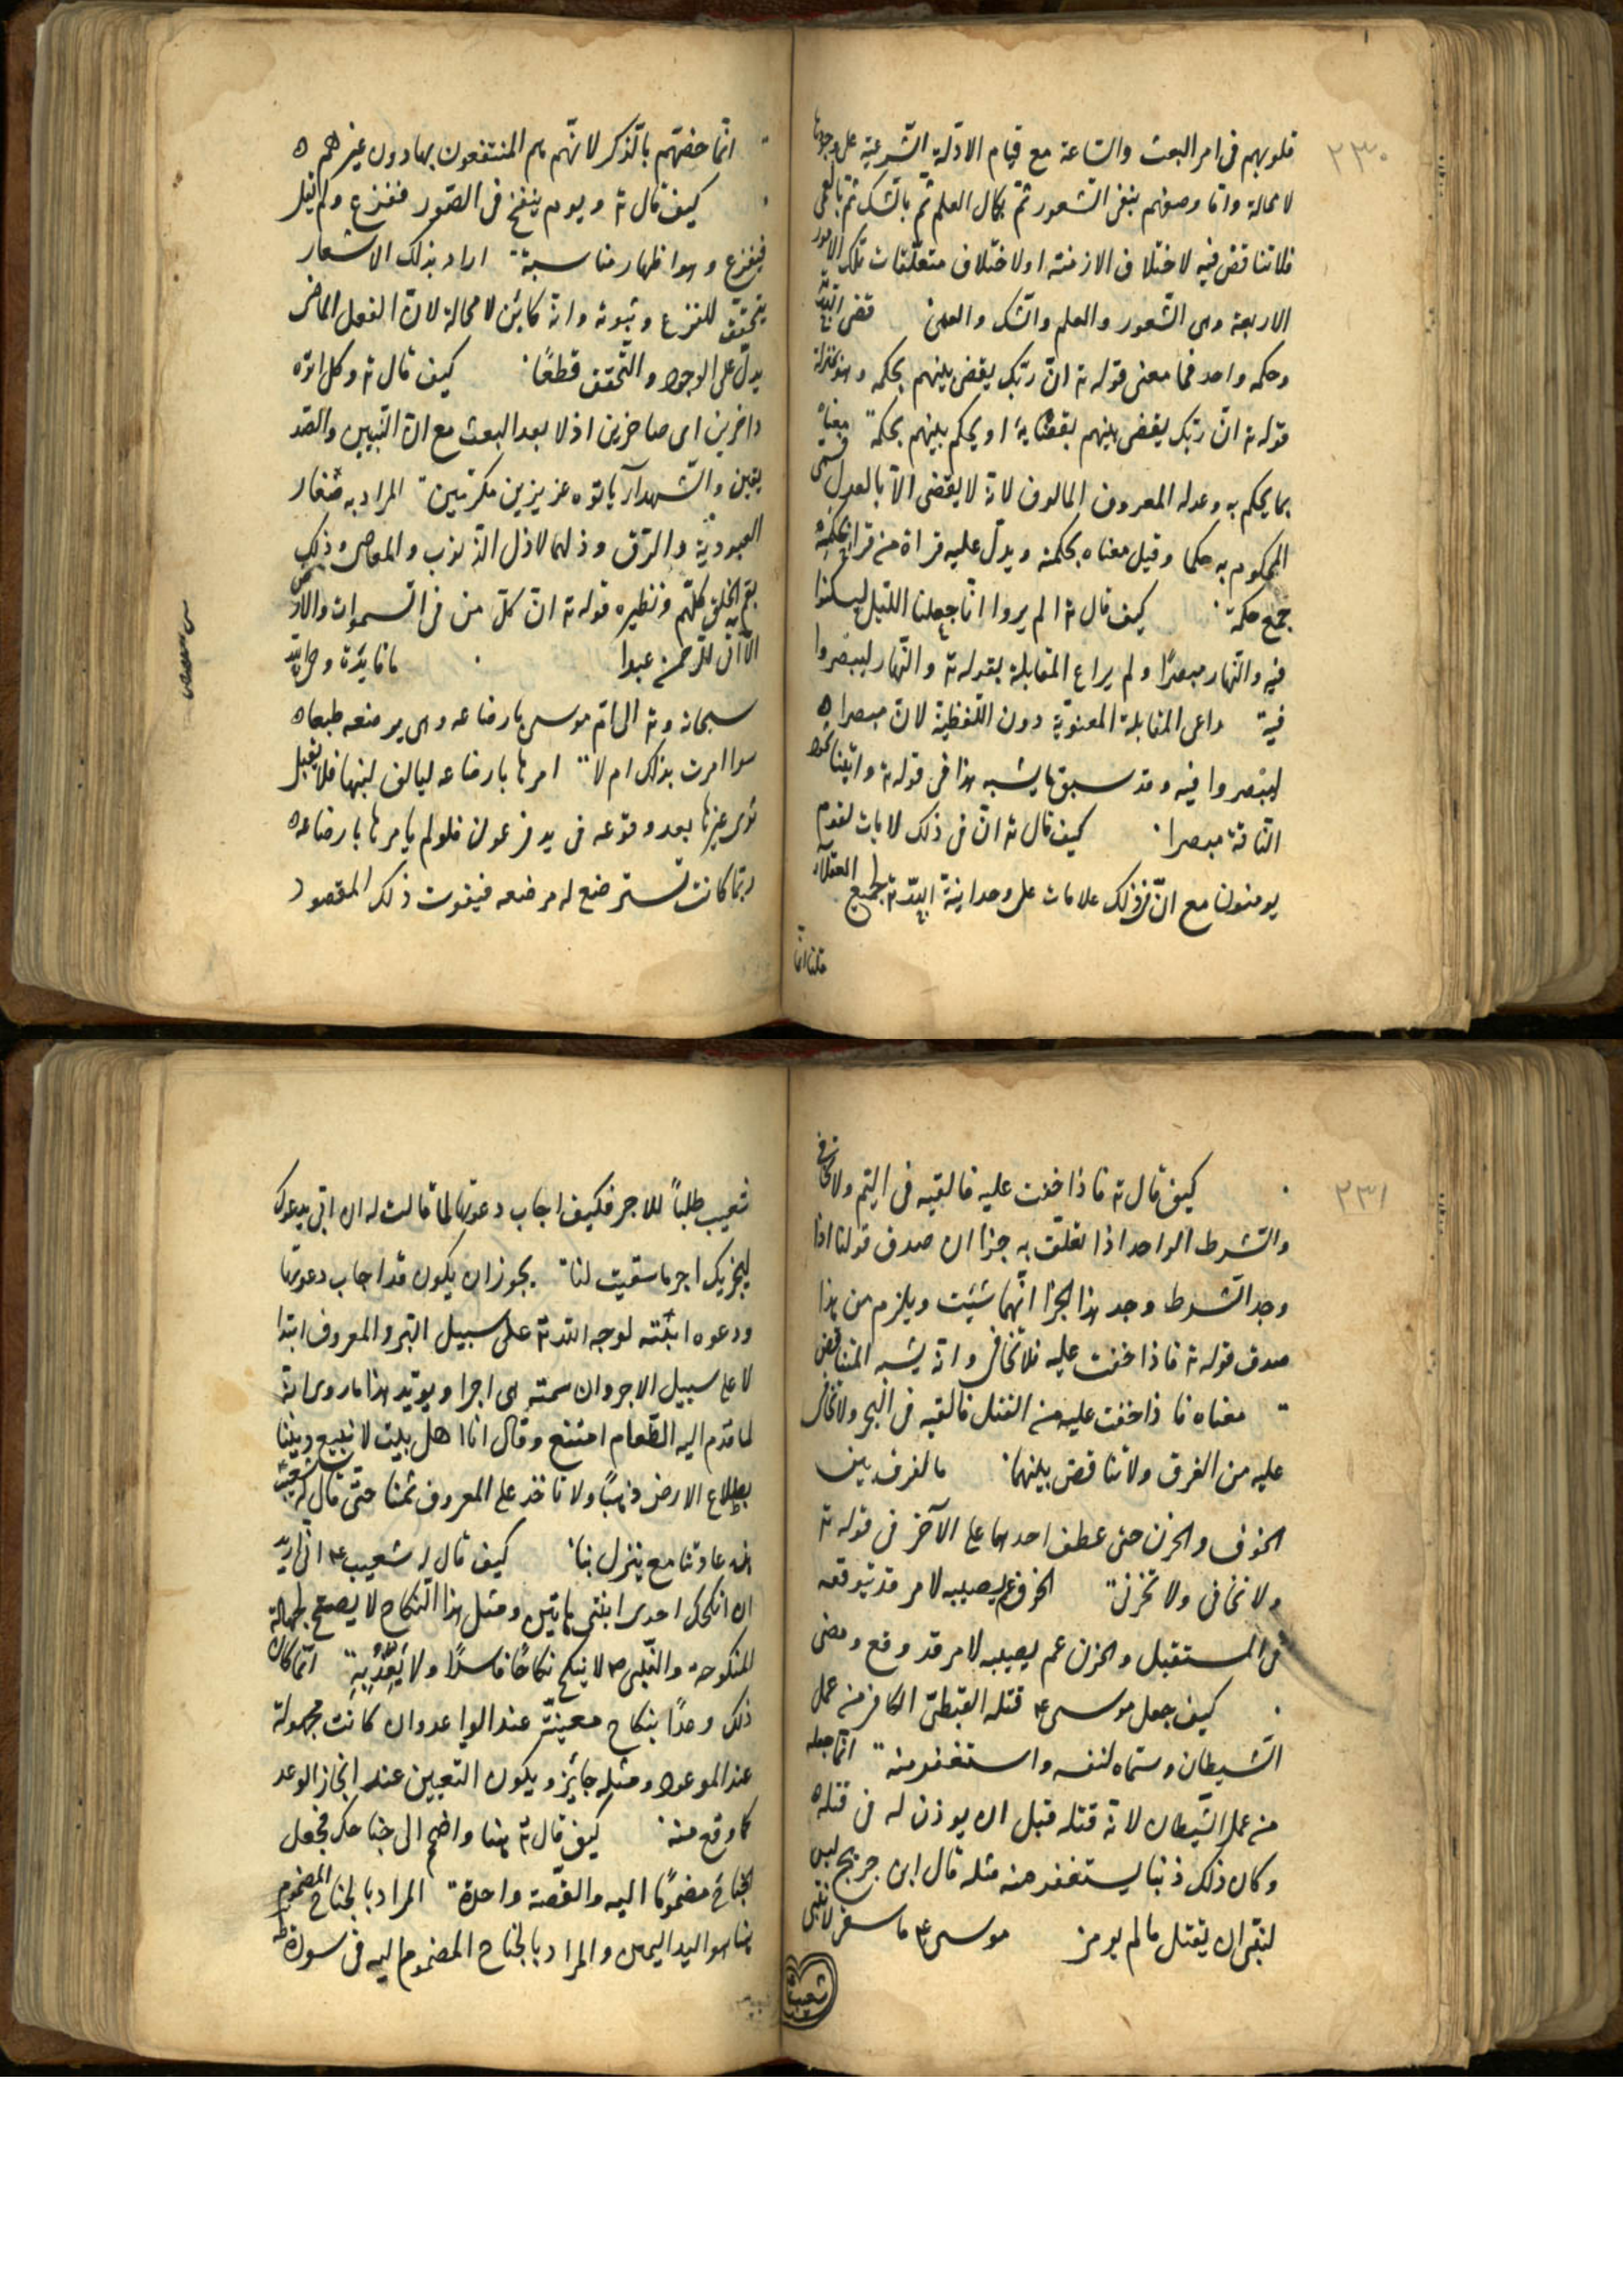 ٢٣٠
قلوبهم فى امر البعث والساعة مع قيام الادلة الشرعية على وجودها
لا محالة واما وصفهم بنفى الشعور ثم بكمال العلم ثم بالشك ثم بالعمى
فلا تناقض فيه لاختلاف الازمنه او لاختلاف متعلقات تلك الامور
الاربعة وهى الشعور والعلم والشك والعمى قضى الله
وحكمه واحد فما معنى قوله تع ان ربك يقضى بينهم بحكمه وهو بمنزلة
قوله تع ان ربك يقضى بينهم بقضايه او يحكم بينهم بحكمه معناه
بما يحكم به وعدله المعروف المالوف لانه لا يقضى الا بالعدل فسمى
المحكوم به حكما وقيل معناه بحكمته ويدل عليه قراة من قرا بحكمه
جمع حكمة كيف قال تع الم يروا انا جعلنا الليل ليسكنوا
فيه والنهار مبصرًا ولم يراع المقابلة بقوله تع والنهار ليبصروا
فيه راعى المقابلة المعنوية دون اللفظية لان مبصرا
ليبصروا فيه وقد سبق ما يشبه هذا فى قوله تع واتينا ثمود
الناقة مبصرا كيف قال تع ان فى ذلك لايات لقوم
يومنون مع ان فى ذلك علامات على وحدانية الله تع لجميع العقلاء
قلنا انما
انما خصهم بالذكر لانهم هم المنتفعون بها دون غيرهم
كيف قال تع ويوم ينفخ فى الصور ففزع ولم يقل
فيفزع وهو اظهار مناسبة اراد بذلك الاشعار
بتحقق للفزع وثبوته وانه كاين لا محالة لان الفعل الماضى
يدل على الوجود والتحقق قطعًا كيف قال تع وكل اتوه
داخرين اى صاغرين اذلا بعد البعث مع ان النبيين والصد
يقين والشهدآ ياتوه عزيزين مكرمين المراد به صغار
العبودية والرق وذلهما لا ذل الذنوب والمعاصى وذلك
يعم الخلق كلهم ونظيره قوله تع ان كل من فى السموات والارض
الا اتى الرحمن عبدا ما فايدة وحى الله
سبحانه وتع الى ام موسى بارضاعه وهى يرضعه طبعا
سوا امرت بذلك ام لا امرها بارضاعه ليالف لبنها فلا يقبل
ثدى غيرها بعد وقوعه فى يد فرعون فلو لم يامرها بارضاعه
ربما كانت تسترضع له مرضعه فيفوت ذلك المقصود
٢٣١
كيف قال تع فاذا خفت عليه فالقيه فى اليم ولا تخافى
والشرط الواحد اذا تعلق به جزا ان صدق قولنا اذا
وجد الشرط وجد هذا الجزا ايهما شيئت ويلزم من هذا
صدق قوله تع فاذا خفت عليه فلا تخافى وانه يشبه المتناقض
معناه فاذا خفت عليه من القتل فالقيه فى البحر ولا تخافى
عليه من الغرق ولا تناقض بينهما ما الفرق بين
الخوف والحزن حتى عطف احدهما على الآخر فى قوله تع
ولا تخافى ولا تحزنى الخوف غم يصيبه لامر قد يتوقعه
فى المستقبل والحزن غم يصيبه لامر قد وقع ومضى
كيف جعل موسى ع قتله القبطى الكافر من عمل
الشيطان وسماه لنفسه واستغفر منه انما جعله
من عمل الشيطان لانه قتله قبل ان يوذن له فى قتله
وكان ذلك ذنبا يستغفر منه مثله قال ابن جريج ليس
لنبى ان يقتل ما لم يومر موسى ع ما سقى لابنتى
شعيب
شعيب طلبًا للاجر فكيف اجاب دعوتها لما قالت له ان ابى يدعوك
ليجزيك اجر ما سقيت لنا يجوز ان يكون قد اجاب دعوتها
ودعوه ابنته لوجه الله تع على سبيل البر والمعروف ابتدا
لا على سبيل الاجر وان سمته هى اجرا ويويد هذا ما روى انه
لما قدم اليه الطعام امتنع وقال انا اهل بيت لا نبيع ديننا
بطلاع الارض ذهبًا ولا ناخذ على المعروف ثمنا حتى قال له شعيب
هذه عادتنا مع ينزل بنا كيف قال له شعيب ع انى اريد
ان انكحك احدى ابنتى هاتين ومثل هذا النكاح لا يصح لجهالة
المنكوحة والنبى ص لا ينكح نكاحًا فاسدًا ولا يَعِدُ بِهِ انما كان
ذلك وعدًا بنكاح معينة عند الواعد وان كانت مجهولة
عند الموعود ومثله جايز ويكون التعيين عند انجاز الوعد
كما وقع منه كيف قال تع هنا واضمم الى جناحك فجعل
الجناح مضمومًا اليه والقصة واحدة المراد بالجناح المضموم
هنا هو اليد اليمنى والمراد بالجناح المضموم اليه فى سورة طه